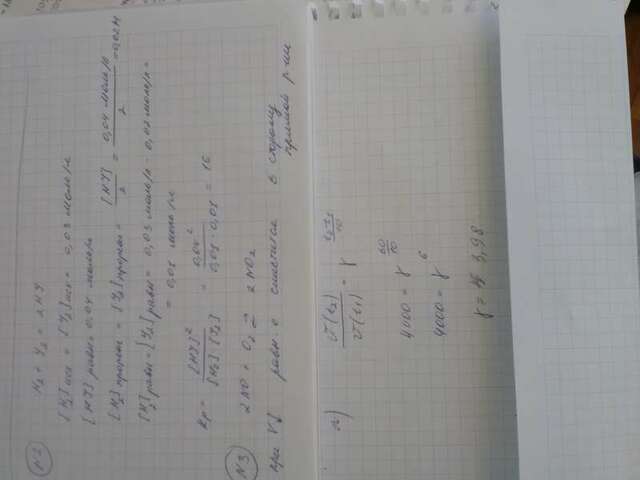 N2
H₂ + Y₂ = 2HY
[H₂]исх = [Y₂]исх = 0,03 моль/л
[HY] равн = 0,04 моль/л
[H₂]прореаг = [Y₂]прореаг = [HY]/2 = 0,04 моль/л / 2 = 0,02 М
[H₂]равн = [Y₂]равн = 0,03 моль/л - 0,02 моль/л =
= 0,01 моль/л
Kр = [HY]²/[H₂]·[Y₂] = 0,04²/0,01·0,01 = 16
N3
2NO + O₂ ⇄ 2NO₂
при V↓ равн-е сместится в сторону
прямой р-ции
а)
v(t₂)/v(t₁) = γ^(t₂-t₁)/10
4000 = γ^60/10
4000 = γ^6
γ = 3,98